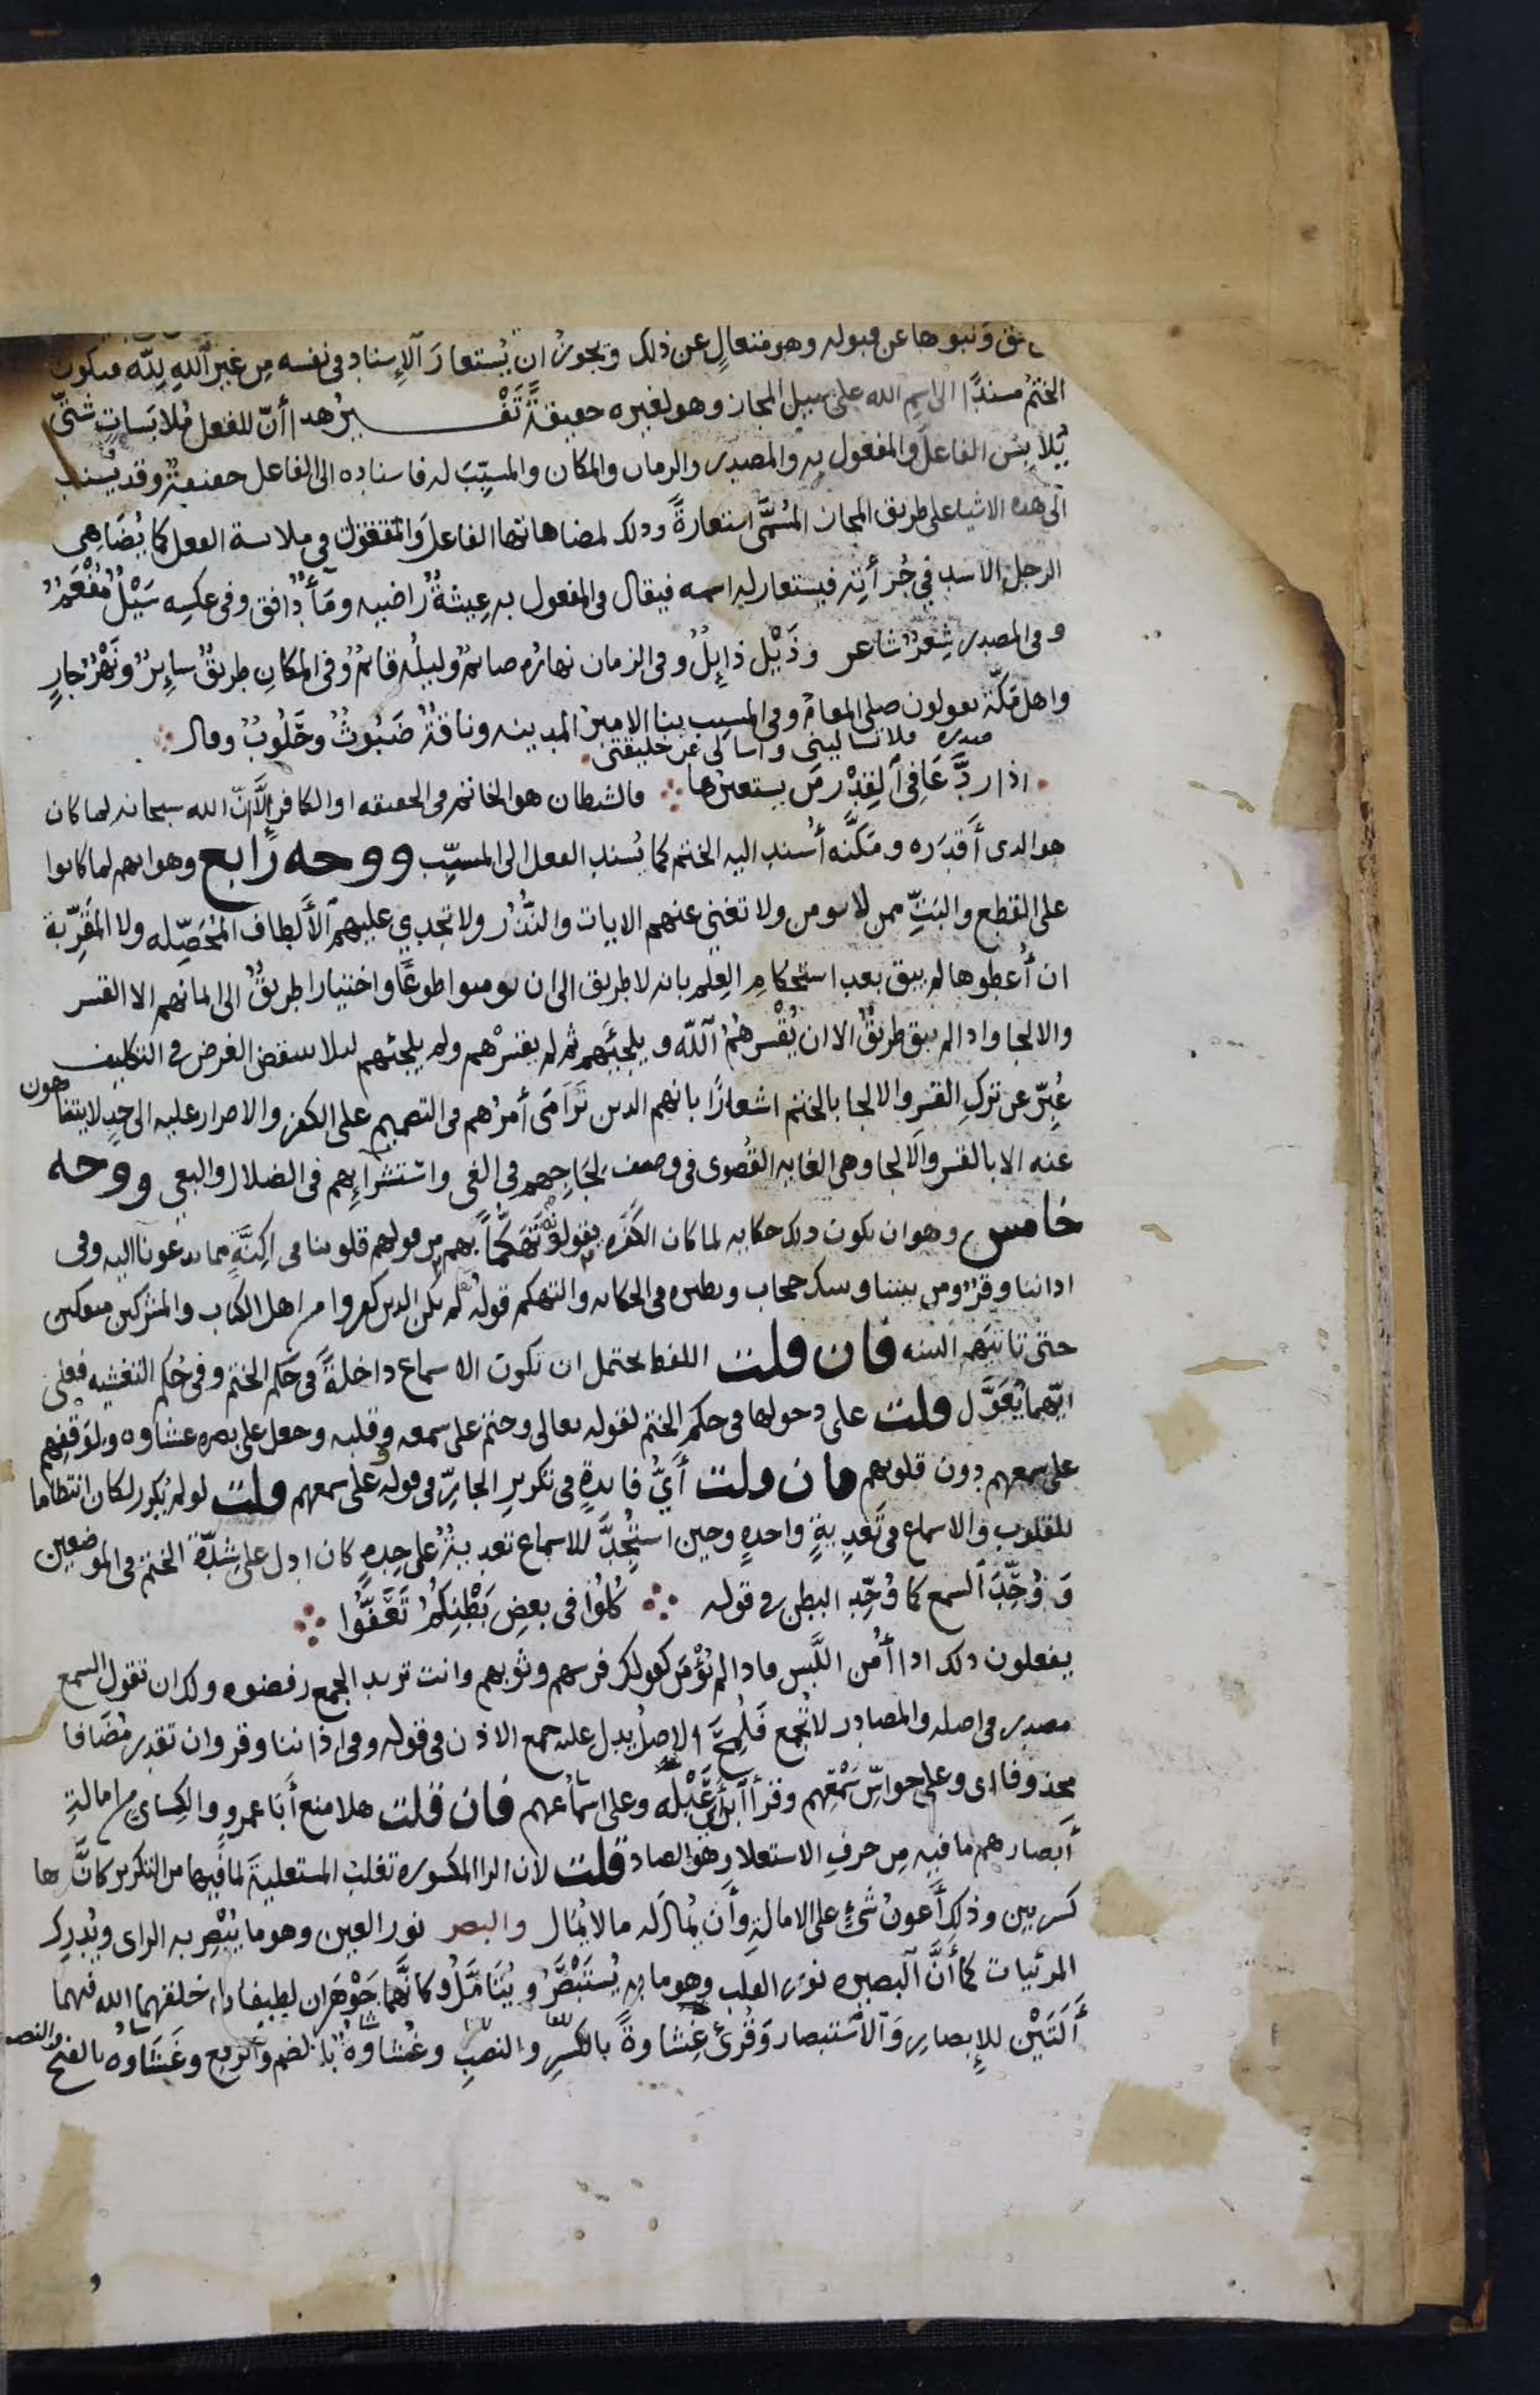 ونبوها عن قبوله وهو متعال عن ذلك ويجوز ان يُستعار الإسناد فى نفسه مِن غير الله لِلّه فيكون
الختم مسندًا الى اسم الله على سبيل المجاز وهو لغيره حقيقةً تَفْسِيرُ هدا أنّ للفعل مُلابَساتٍ شتّى
يُلابِسُ الفاعلَ والمفعول به والمصدر والزمان والمكان والمسبّبَ له فاسناده الى الفاعل حقيقةٌ وقد يُسند
الى هده الاشيا على طريق المجاز المُسَمَّى استعارةً ودلك لمضاهاتها الفاعلَ والمفعول في ملابسة الفعل كما يُضَاهِي
الرجل الاسد في جُرأتِه فيستعار له اسمه فيقال فى المفعول به عِيشةٌ راضيه ومَاءٌ دافق وفى عكسِه سَيْلٌ مُفْعَمٌ
وفى المصدر شِعرٌ شاعر وذَيْل ذايِلٌ وفى الزمان نهاره صائمٌ وليلُه قائمٌ وفى المكان طريقٌ سايرٌ ونَهْرٌ جارٍ
واهل مَكّة يقولون صلى المقامُ وفى المسبب بنا الامير المدينه وناقةٌ ضَبُوثٌ وحَلُوبٌ وقال
فلا تساليني واسالي عن خليقتى
اذا ردَّ عَافِى القِدْر مَن يستعيرها فالشيطان هو الخاتم فى الحقيقه او الكافر إلّا انّ الله سبحانه لما كان
هو الدى أَقدَره ومَكَّنَه أُسند اليه الختم كما يُسند الفعل الى المسبّب ووجه رابع وهو انهم لما كانوا
على القطع والبَتِّ ممن لا يومن ولا تغنى عنهم الايات والنُّذُر ولا تجدي عليهم الألطاف المُحَصّله ولا المقرّبة
ان أُعطوها لم يبق بعد استحكامِ العِلم بانه لا طريق الى ان يومنوا طوعًا واختيارا طريقٌ الى ايمانهم الا القسر
والالجا واذا لم يبق طريقٌ الا ان يُقْسِرهُمُ الله ويلجئَهم ثم لم يقسرْهم ولم يلجئهم ليلا ينتقض الغرض فى التكليف
عُبِّر عن تركِ القسر والالجا بالختم اشعارًا بانهم الدين تَرَامَى أمرُهم فى التصميم على الكفر والاصرار عليه الى حدٍ لا يتناهون
عنه الا بالقسر والالجا وهى الغايه القُصوى فى وصف لجَاجِهم فى الغي واستشرآيهم فى الضلال والبغى ووجه
خامس وهو ان يكون دلك حكايه لما كان الكَفَره يقولونه تَهَكُّماً بهم من قولهم قلوبنا فى اكِنَّةٍ مما تدعونا اليه وفى
اداننا وقرٌ ومن بيننا وبينك حجاب ونظيره فى الحكايه والتهكم قولُه لم يكن الدين كفروا من اهل الكتاب والمشركين منفكين
حتى تاتيَهم البينه فان قلت اللفظ يحتمل ان تكون الاسماع داخلةً فى حكم الختم وفى حُكم التغشيه فعلى
ايّهما يُعَوَّل قلت على دخولها فى حكم الختم لقوله تعالى وختم على سمعه وقلبه وجعل على بصره غشاوه ولوقفهم
على سمعهم دون قلوبهم فان قلت أَيُّ فايدةٍ فى تكريرِ الجارّ فى قوله وعلى سمعهم قلت لو لم يُكرر لكان انتظاما
للقلوب والاسماع فى تَعدِيةٍ واحدهٍ وحين استُجِدَّ للاسماع تعديةٌ على حِدهٍ كان ادل على شِدّة الختم فى الموضعين
وَوُحِّدَ السمع كما وُحِّد البطن فى قوله كُلُوا فى بعضِ بَطْنِكُمُ تَعَفُّوا
يفعلون دلك ادا أُمن اللَّبس فادا لم يُؤْمَن كقولك فرسهم وثوبهم وانت تريد الجمع رفضوه ولك ان تقول السمع
مصدر فى اصله والمصادر لا تُجمع فَلُمِحَ الاصلُ يدل عليه جمع الاذن فى قوله وفى اذاننا وقر وان تقدر مُضَافا
محذوفا اى وعلى حواسّ سَمْعِهم وقرأ ابن أبى عَبْلَه وعلى اسماعهم فان قلت هلا منع أَبا عمرو والكِساى من امالةِ
أبصارهم ما فيه مِن حرفِ الاستعلا وهو الصاد قلت لان الرا المكسوره تغلب المستعليةَ لما فيها من التكرير كأنَّ ها
كسرتين وذلك أَعونُ شىءٍ على الامالةِ وأَن يُمال له ما لا يُمَال والبصر نور العين وهو ما يُبْصِر به الراى ويُدرِك
المرئيات كما أَنَّ البصيره نورُ القلب وهو ما به يُستَبْصَرُ ويُتَامَّلُ وكانَّهما جَوْهَران لطيفان خلقهما الله فيهما
أَلَتَيْن للإبصارِ والاستبصار وَقُرئ غِشاوةً بالكسرِ والنصبِ وغُشاوة بالضم والرفع وغَشَاوه بالفتح والنصب